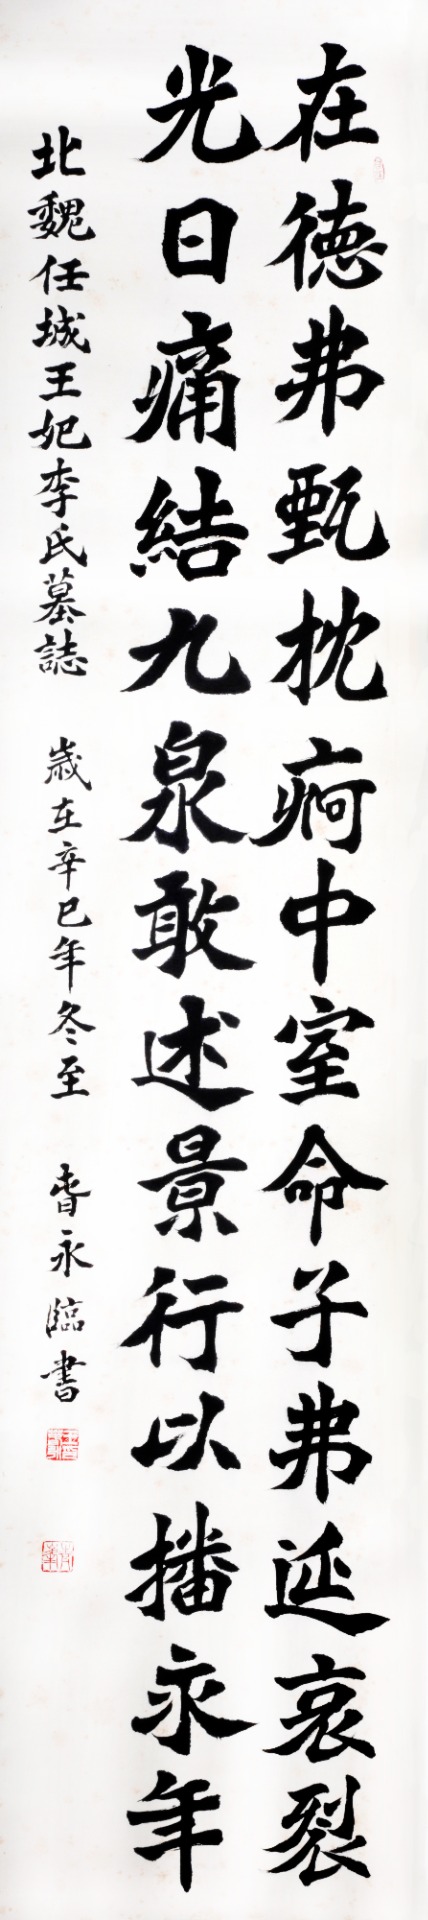 在德弗甄枕痾中室命子弗延哀裂
光日痛結九泉敢述景行以播永年
北魏任城王妃李氏墓誌 歲在辛巳年冬至 香永臨書